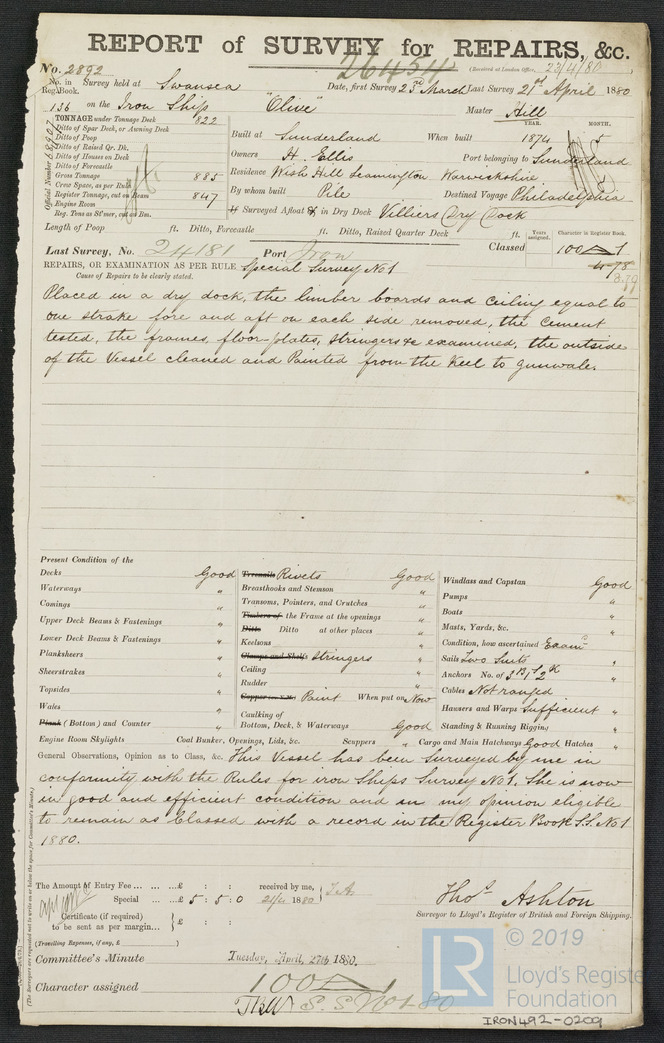 REPORT of SURVEY for REPAIRS, &c.
26454
(Received at London Office, 23/4/80)
No. 2892
No. in Reg. Book. Survey held at Swansea Date, first Survey 23rd March Last Survey 21st April 1880
136 on the Iron Ship "Olive" Master Hill
TONNAGE under Tonnage Deck 822
Ditto of Spar Deck, or Awning Deck
Ditto of Poop
Ditto of Raised Qr. Dk.
Ditto of Houses on Deck
Ditto of Forecastle
Gross Tonnage 885
Crew Space, as per Rule
Register Tonnage, cut on Beam 847
Engine Room
Reg. Tons as St'mer, cut on Bm.
Official Number 68907
YEAR. MONTH.
Built at Sunderland When built 1874 5
Owners H. Ellis Port belonging to Sunderland
Residence Wish Hill Leamington Warwickshire
By whom built Pile Destined Voyage Philadelphia
If Surveyed Afloat or in Dry Dock Villiers Dry Dock
Length of Poop ft. Ditto, Forecastle ft. Ditto, Raised Quarter Deck ft.
Years assigned. Character in Register Book.
Classed 100 A 1
4.78
3.79
Last Survey, No. 24181 Port Iron
REPAIRS, OR EXAMINATION AS PER RULE, Special Survey No 1
Cause of Repairs to be clearly stated.
Placed in a dry dock, the limber boards and ceiling equal to
one strake fore and aft on each side removed, the cement
tested, the frames, floor-plates, stringers &c examined, the outside
of the Vessel cleaned and Painted from the Keel to gunwale.
Present Condition of the
Decks Good
Waterways "
Comings "
Upper Deck Beams & Fastenings "
Lower Deck Beams & Fastenings "
Planksheers "
Sheerstrakes "
Topsides "
Wales "
Plank (Bottom) and Counter "
Treenails Rivets Good
Breasthooks and Stemson "
Transoms, Pointers, and Crutches "
Timbers of the Frame at the openings "
Ditto Ditto at other places "
Keelsons "
Clamps and Shelfs Stringers "
Ceiling "
Rudder "
Copper (or Y.M.) Paint When put on Now
Caulking of
Bottom, Deck, & Waterways Good
Windlass and Capstan Good
Pumps "
Boats "
Masts, Yards, &c. "
Condition, how ascertained Examd
Sails Two Suits "
Anchors No. of 3 B, 1 S, 2 K "
Cables Not ranged
Hawsers and Warps Sufficient "
Standing & Running Rigging "
Engine Room Skylights Coal Bunker, Openings, Lids, &c. Scuppers " Cargo and Main Hatchways Good Hatches "
General Observations, Opinion as to Class, &c. This Vessel has been Surveyed by me in
conformity with the Rules for iron Ships Survey No 1. She is now
in good and efficient condition and in my opinion eligible
to remain as Classed with a record in the Register Book S.S. No 1
1880.
(The Surveyors are requested not to write on or below the space for Committee's Minute.)
The Amount of Entry Fee ... £ : : received by me,
Special ... £ 5 : 5 : 0 21/4 1880
Certificate (if required)
to be sent as per margin... £ : :
(Travelling Expenses, if any, £ )
Thos. Ashton
Surveyor to Lloyd's Register of British and Foreign Shipping.
Committee's Minute Tuesday, April, 27th 1880.
Character assigned 100 A 1
S. S. No 1-80
LR
© 2019
Lloyd's Registe
Foundation
IRON492-0209